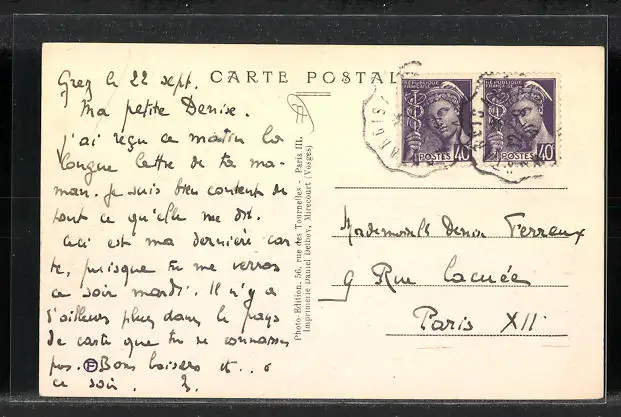 CARTE POSTALE
Grez le 22 sept.
Ma petite Denise.
j'ai reçu ce matin la
longue lettre de ta ma-
man. Je suis bien content de
tout ce qu'elle me dit.
Ceci est ma dernière car
te, puisque tu me verras
ce soir mardi. Il n'y a
d'ailleurs plus dans le pays
de carte que tu ne connaisses
pas. Bons baisers et
ce soir.
Photo-Edition, 56, rue des Tournelles - Paris III.
Imprimerie Daniel Delboy, Mirecourt (Vosges)
REPUBLIQUE FRANÇAISE
POSTES 40c
REPUBLIQUE FRANÇAISE
POSTES 40c
Mademoiselle Denise Perreux
9 Rue Lacuée
Paris XII